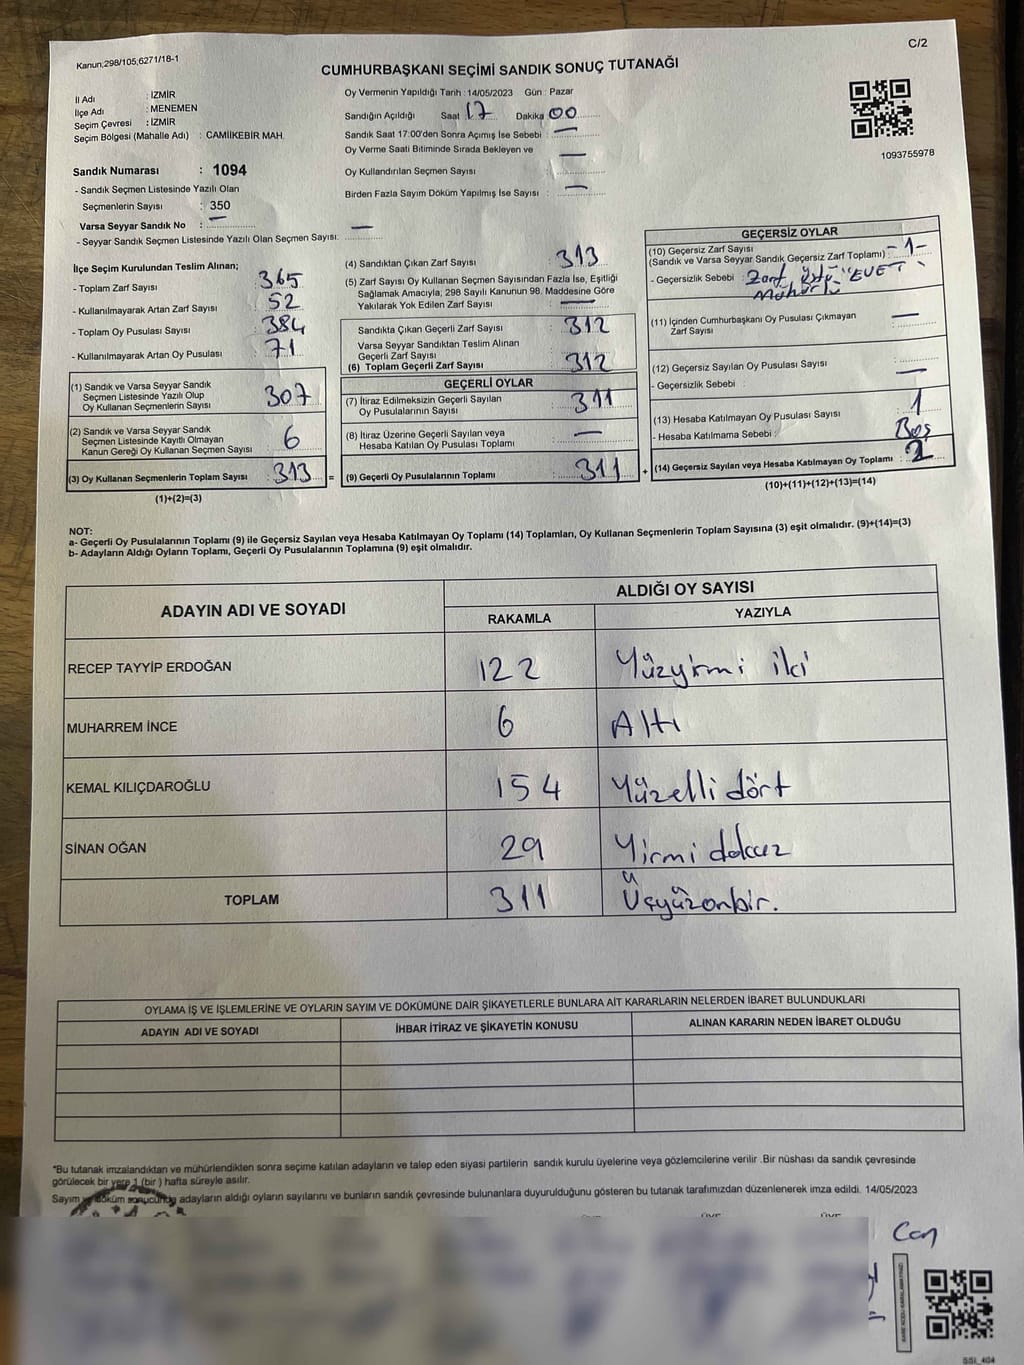 Kanun;298/105,6271/18-1
C/2
CUMHURBAŞKANI SEÇİMİ SANDIK SONUÇ TUTANAĞI
İl Adı : İZMİR
İlçe Adı : MENEMEN
Seçim Çevresi : İZMİR
Seçim Bölgesi (Mahalle Adı) : CAMİİKEBİR MAH.
Sandık Numarası : 1094
- Sandık Seçmen Listesinde Yazılı Olan
Seçmenlerin Sayısı : 350
Varsa Seyyar Sandık No : —
- Seyyar Sandık Seçmen Listesinde Yazılı Olan Seçmen Sayısı: —
Oy Vermenin Yapıldığı Tarih : 14/05/2023 Gün : Pazar
Sandığın Açıldığı Saat 17 Dakika 00
Sandık Saat 17:00'den Sonra Açımış İse Sebebi : —
Oy Verme Saati Bitiminde Sırada Bekleyen ve
Oy Kullandırılan Seçmen Sayısı : —
Birden Fazla Sayım Döküm Yapılmış İse Sayısı : —
1093755978
İlçe Seçim Kurulundan Teslim Alınan;
- Toplam Zarf Sayısı : 365
- Kullanılmayarak Artan Zarf Sayısı : 52
- Toplam Oy Pusulası Sayısı : 384
- Kullanılmayarak Artan Oy Pusulası : 71
(1) Sandık ve Varsa Seyyar Sandık
Seçmen Listesinde Yazılı Olup
Oy Kullanan Seçmenlerin Sayısı : 307
(2) Sandık ve Varsa Seyyar Sandık
Seçmen Listesinde Kayıtlı Olmayan
Kanun Gereği Oy Kullanan Seçmen Sayısı : 6
(3) Oy Kullanan Seçmenlerin Toplam Sayısı : 313 =
(1)+(2)=(3)
(4) Sandıktan Çıkan Zarf Sayısı : 313
(5) Zarf Sayısı Oy Kullanan Seçmen Sayısından Fazla İse, Eşitliği
Sağlamak Amacıyla, 298 Sayılı Kanunun 98. Maddesine Göre
Yakılarak Yok Edilen Zarf Sayısı : —
Sandıkta Çıkan Geçerli Zarf Sayısı : 312
Varsa Seyyar Sandıktan Teslim Alınan
Geçerli Zarf Sayısı
(6) Toplam Geçerli Zarf Sayısı : 312
GEÇERLİ OYLAR
(7) İtiraz Edilmeksizin Geçerli Sayılan
Oy Pusulalarının Sayısı : 311
(8) İtiraz Üzerine Geçerli Sayılan veya
Hesaba Katılan Oy Pusulası Toplamı : —
(9) Geçerli Oy Pusulalarının Toplamı : 311 +
GEÇERSİZ OYLAR
(10) Geçersiz Zarf Sayısı
(Sandık ve Varsa Seyyar Sandık Geçersiz Zarf Toplamı) - 1 -
- Geçersizlik Sebebi : Zarf üstü "EVET"
Mühürlü
(11) İçinden Cumhurbaşkanı Oy Pusulası Çıkmayan
Zarf Sayısı : —
(12) Geçersiz Sayılan Oy Pusulası Sayısı : —
- Geçersizlik Sebebi :
(13) Hesaba Katılmayan Oy Pusulası Sayısı : 1
- Hesaba Katılmama Sebebi : Boş
(14) Geçersiz Sayılan veya Hesaba Katılmayan Oy Toplamı : 2
(10)+(11)+(12)+(13)=(14)
NOT:
a- Geçerli Oy Pusulalarının Toplamı (9) ile Geçersiz Sayılan veya Hesaba Katılmayan Oy Toplamı (14) Toplamları, Oy Kullanan Seçmenlerin Toplam Sayısına (3) eşit olmalıdır. (9)+(14)=(3)
b- Adayların Aldığı Oyların Toplamı, Geçerli Oy Pusulalarının Toplamına (9) eşit olmalıdır.
ADAYIN ADI VE SOYADI
ALDIĞI OY SAYISI
RAKAMLA YAZIYLA
RECEP TAYYİP ERDOĞAN 122 Yüzyirmi iki
MUHARREM İNCE 6 Altı
KEMAL KILIÇDAROĞLU 154 Yüzelli dört
SİNAN OĞAN 29 Yirmi dokuz
TOPLAM 311 Üçyüzonbir.
OYLAMA İŞ VE İŞLEMLERİNE VE OYLARIN SAYIM VE DÖKÜMÜNE DAİR ŞİKAYETLERLE BUNLARA AİT KARARLARIN NELERDEN İBARET BULUNDUKLARI
ADAYIN ADI VE SOYADI İHBAR İTİRAZ VE ŞİKAYETİN KONUSU ALINAN KARARIN NEDEN İBARET OLDUĞU
*Bu tutanak imzalandıktan ve mühürlendikten sonra seçime katılan adayların ve talep eden siyasi partilerin sandık kurulu üyelerine veya gözlemcilerine verilir .Bir nüshası da sandık çevresinde
görülecek bir yere 1 (bir ) hafta süreyle asılır.
Sayım ve döküm sonucunda adayların aldığı oyların sayılarını ve bunların sandık çevresinde bulunanlara duyurulduğunu gösteren bu tutanak tarafımızdan düzenlenerek imza edildi. 14/05/2023
Can